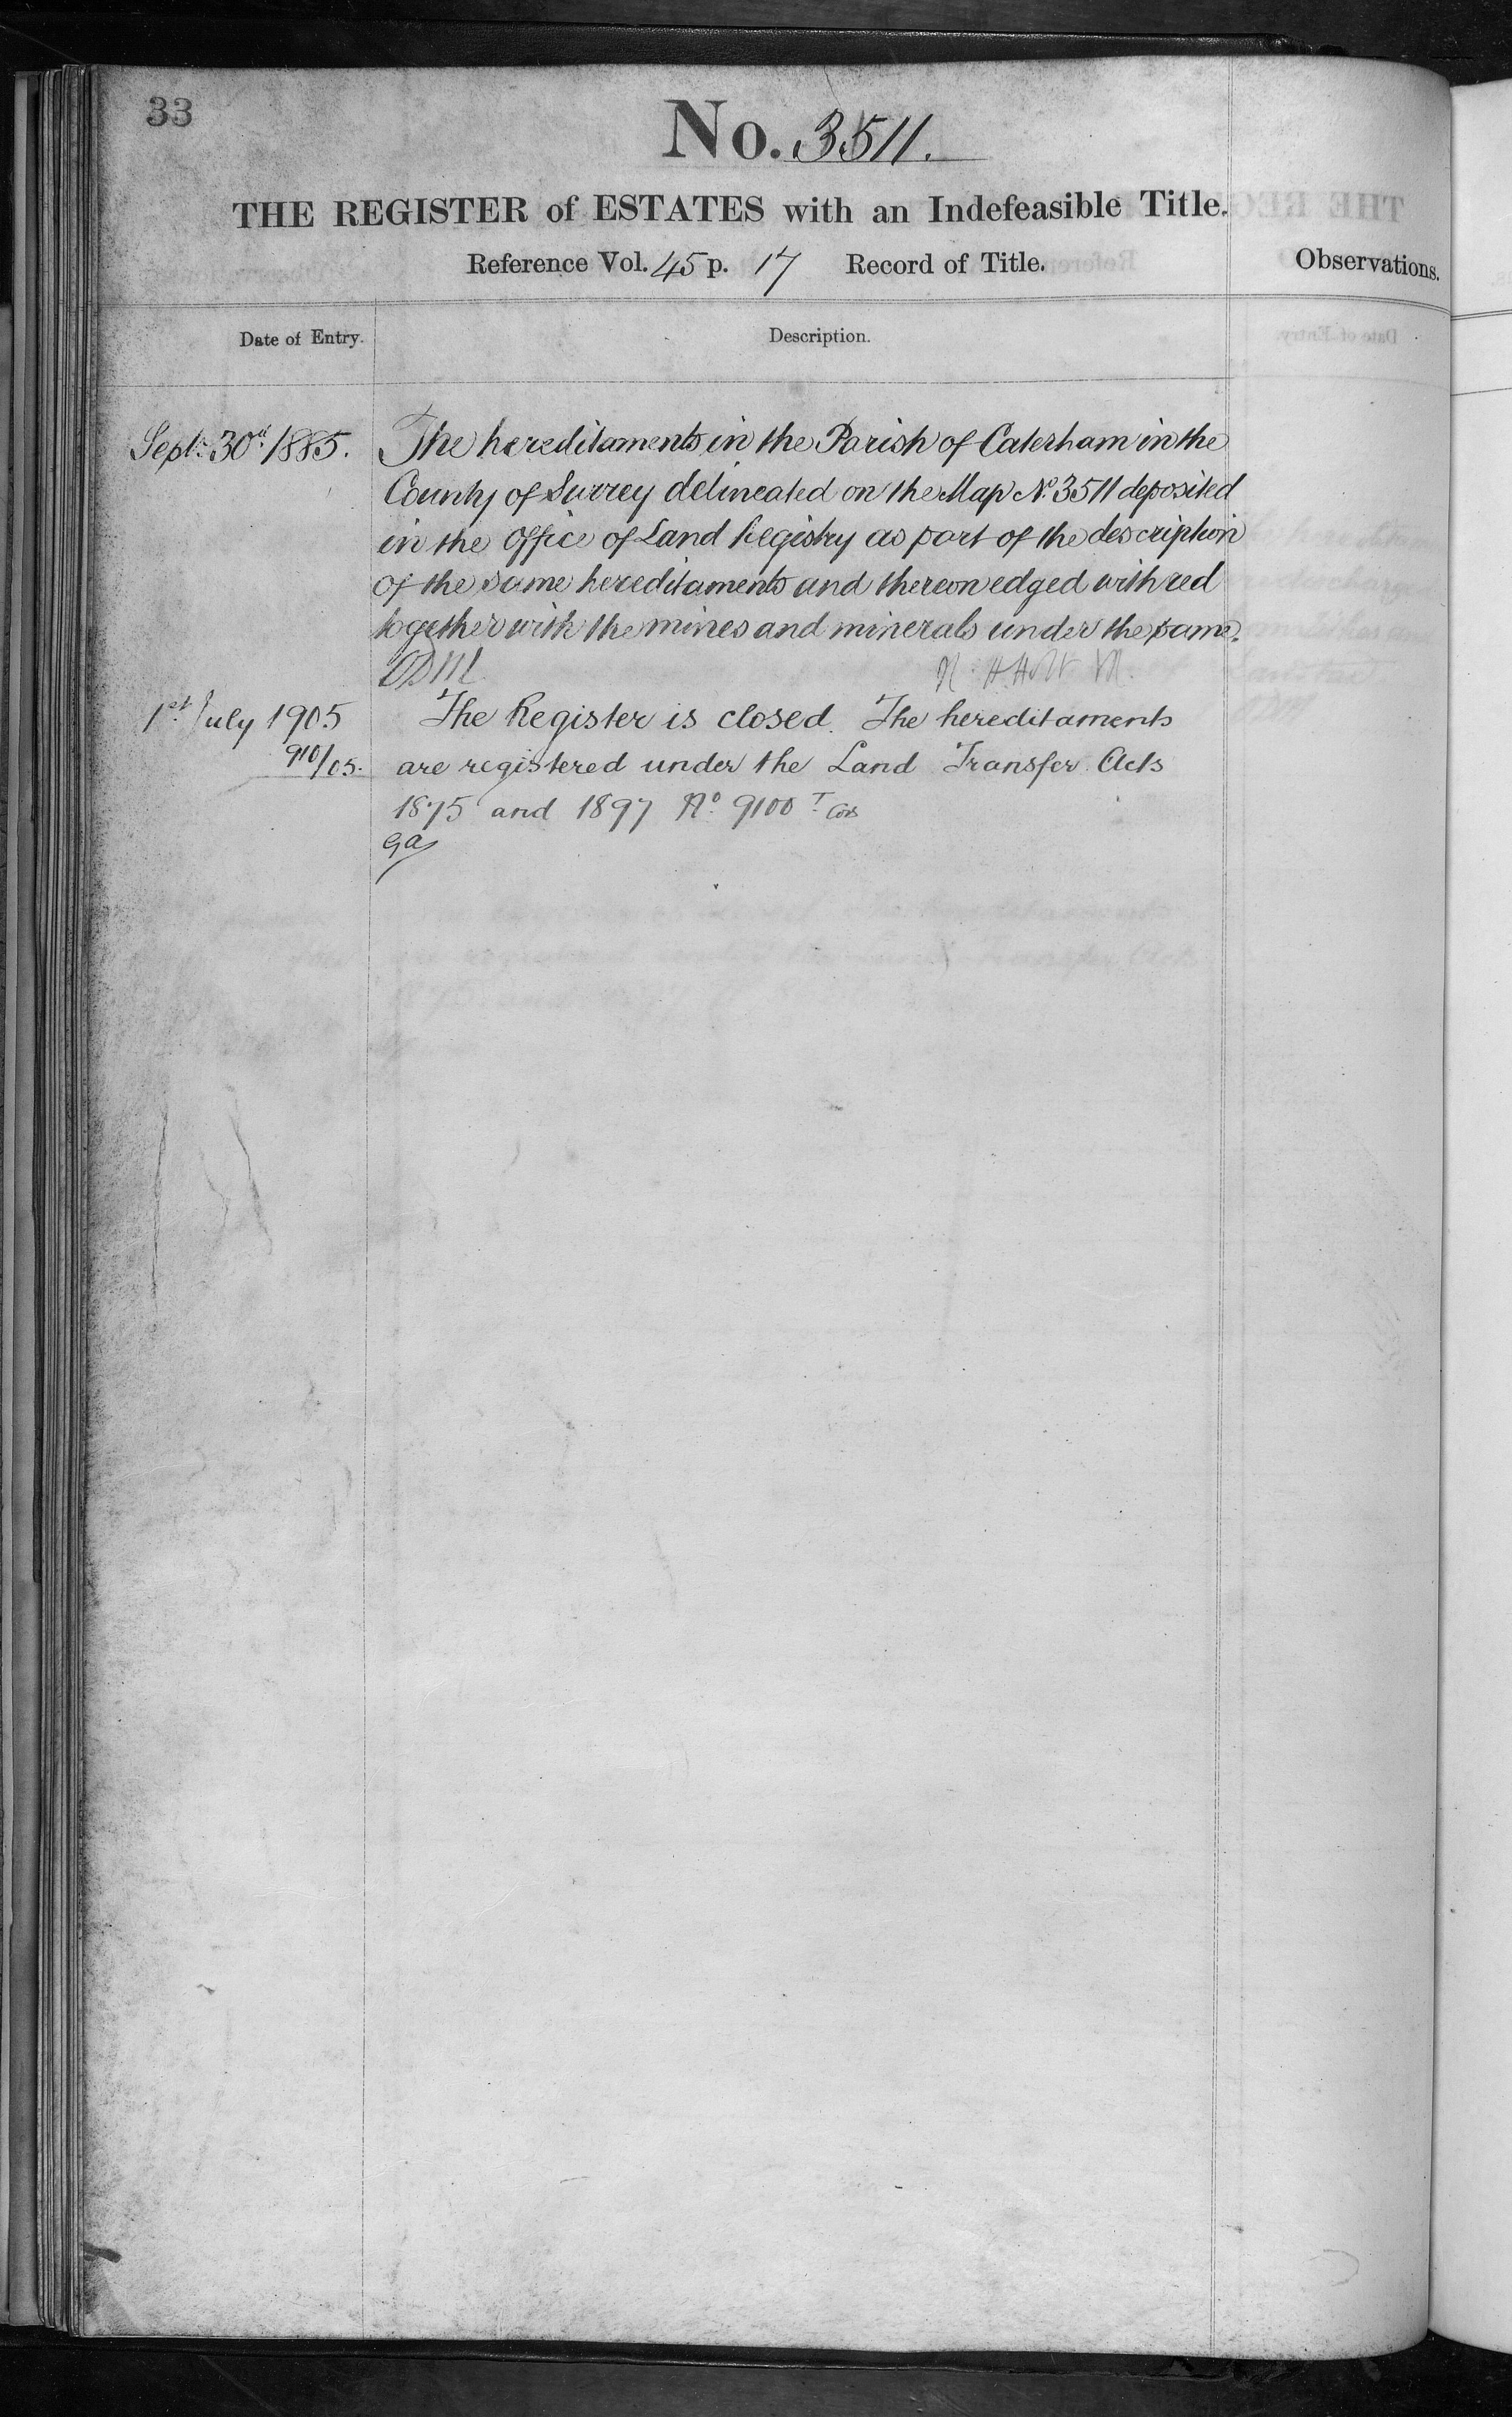 33
No. 3511.
THE REGISTER of ESTATES with an Indefeasible Title.
Reference Vol. 45 p. 17 Record of Title.
Observations.
Date of Entry.
Description.
Sept. 30th 1885.
The hereditaments in the Parish of Caterham in the
County of Surrey delineated on the Map No. 3511 deposited
in the Office of Land Registry as part of the description
of the same hereditaments and thereon edged with red
together with the mines and minerals under the same.
1st July 1905
910/05.
The Register is closed. The hereditaments
are registered under the Land Transfer Acts
1875 and 1897 No. 9100